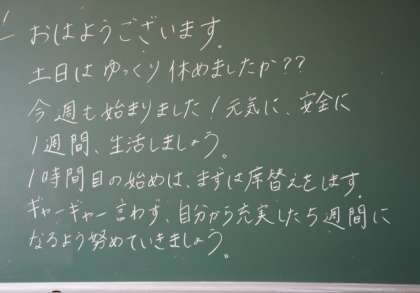 おはようございます。
土日はゆっくり休めましたか??
今週も始まりました!元気に、安全に
1週間、生活しましょう。
1時間目の始めは、まずは席替えをします。
ギャーギャー言わず、自分から充実した5週間に
なるよう努めていきましょう。